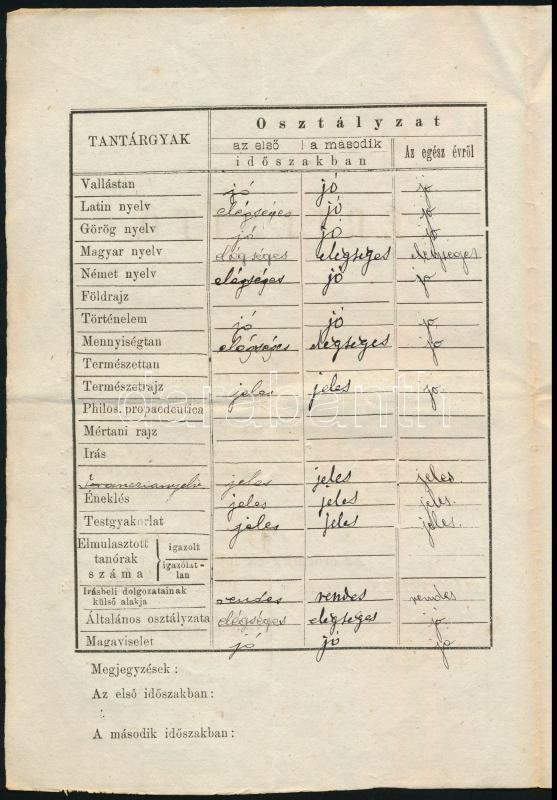 TANTÁRGYAK
Osztályzat
az első | a második
időszakban
Az egész évről
Vallástan jó jó jó
Latin nyelv elégséges jó jó
Görög nyelv jó jó jó
Magyar nyelv elégséges elégséges elégséges
Német nyelv elégséges jó jó
Földrajz
Történelem jó jó jó
Mennyiségtan elégséges elégséges jó
Természettan
Természetrajz jeles jeles jó
Philos. propaedeutica
Mértani rajz
Irás
Franczia nyelv jeles jeles jeles
Éneklés jeles jeles jeles
Testgyakorlat jeles jeles jeles
Elmulasztott tanórak száma
igazolt
igazolat-
lan
Irásbeli dolgozatainak külső alakja rendes rendes rendes
Általános osztályzata elégséges elégséges jó
Magaviselet jó jó jó
Megjegyzések :
Az első időszakban :
A második időszakban :
darabanth